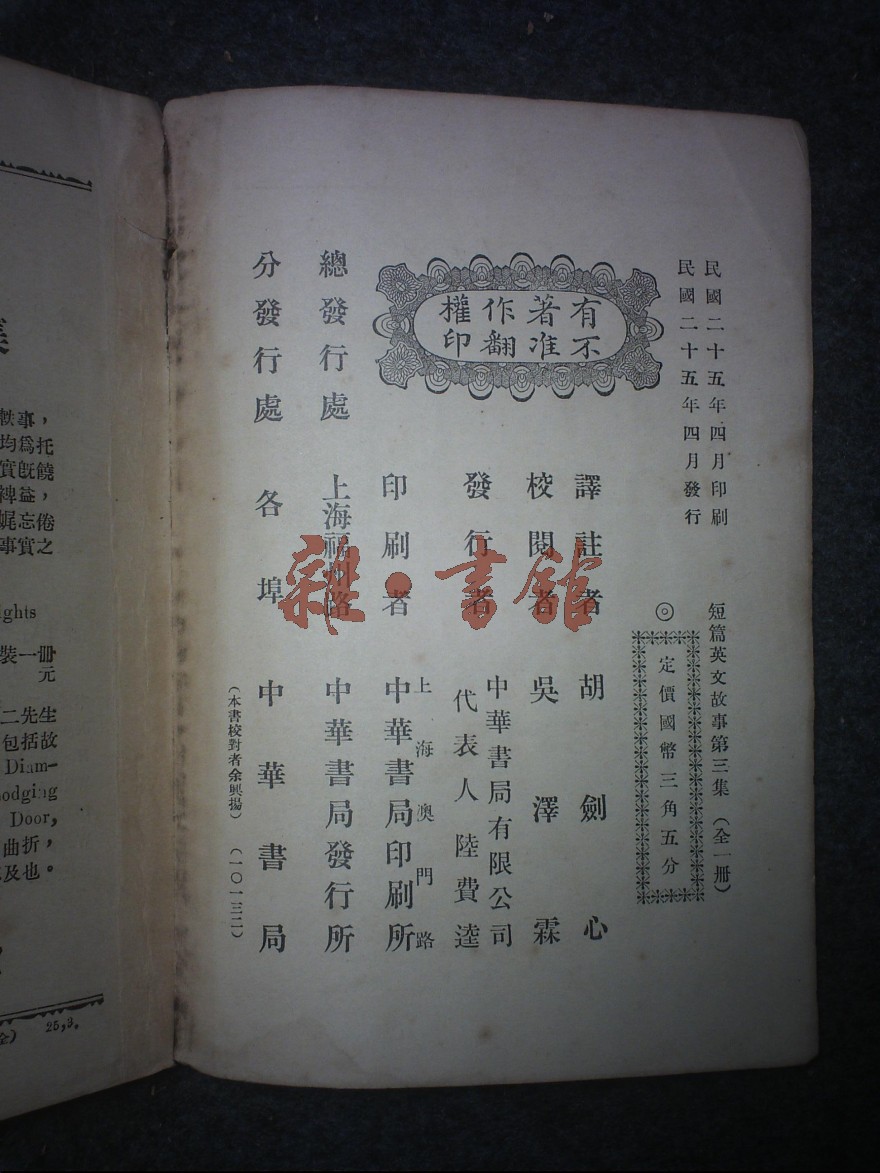 民國二十五年四月印刷
民國二十五年四月發行
短篇英文故事第三集（全一冊）
◎定價國幣三角五分
有著作權
不准翻印
譯註者 胡劍心
校閱者 吳澤霖
發行者 中華書局有限公司
代表人 陸費逵
印刷者 上海澳門路
中華書局印刷所
總發行處 上海福州路 中華書局發行所
分發行處 各埠 中華書局
（本書校對者余興揚）（一〇一三二）
雜·書館
軼事，
均爲托
實旣饒
裨益，
娓忘倦
事實之
ghts
裝一冊
元
二先生
包括故
Diam-
odging
Door,
曲折，
及也。
25,3.